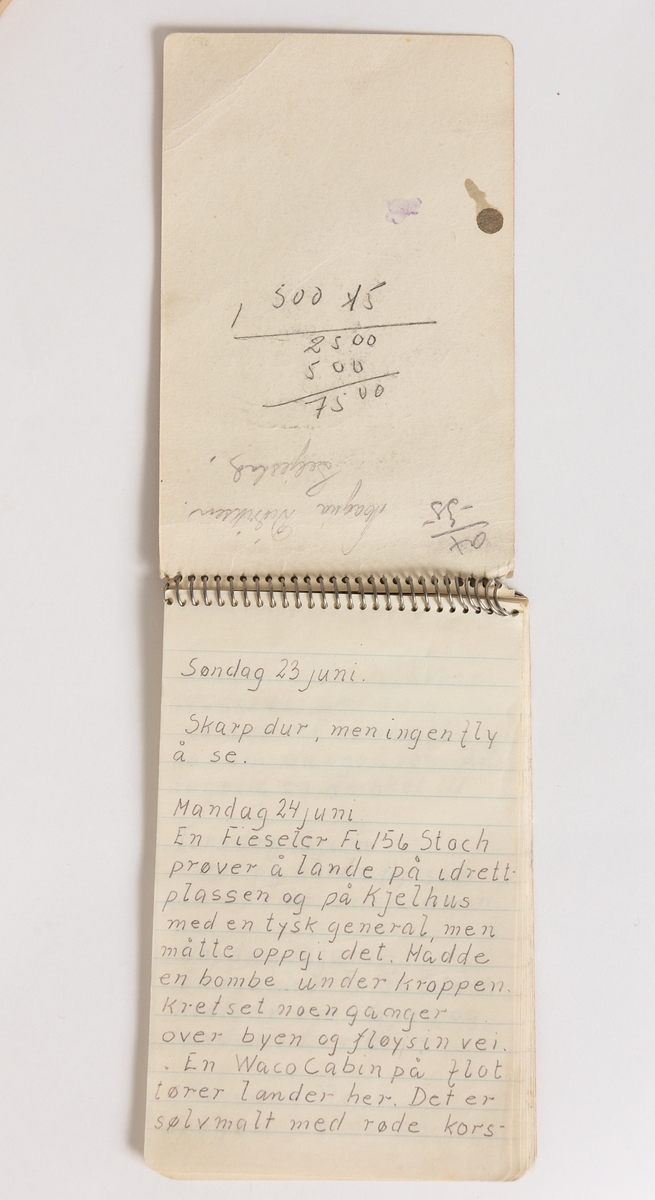 1 500 x 5
2500
500
7500
Søndag 23 juni.
Skarp dur, men ingen fly
å se.
Mandag 24 juni
En Fieseler Fi 156 Stoch
prøver å lande på idrett-
plassen og på Kjelhus
med en tysk general, men
måtte oppgi det. Hadde
en bombe under kroppen.
Kretset noen ganger
over byen og fløy sin vei.
. En Waco Cabin på flot
tører lander her. Det er
sølvmalt med røde kors-